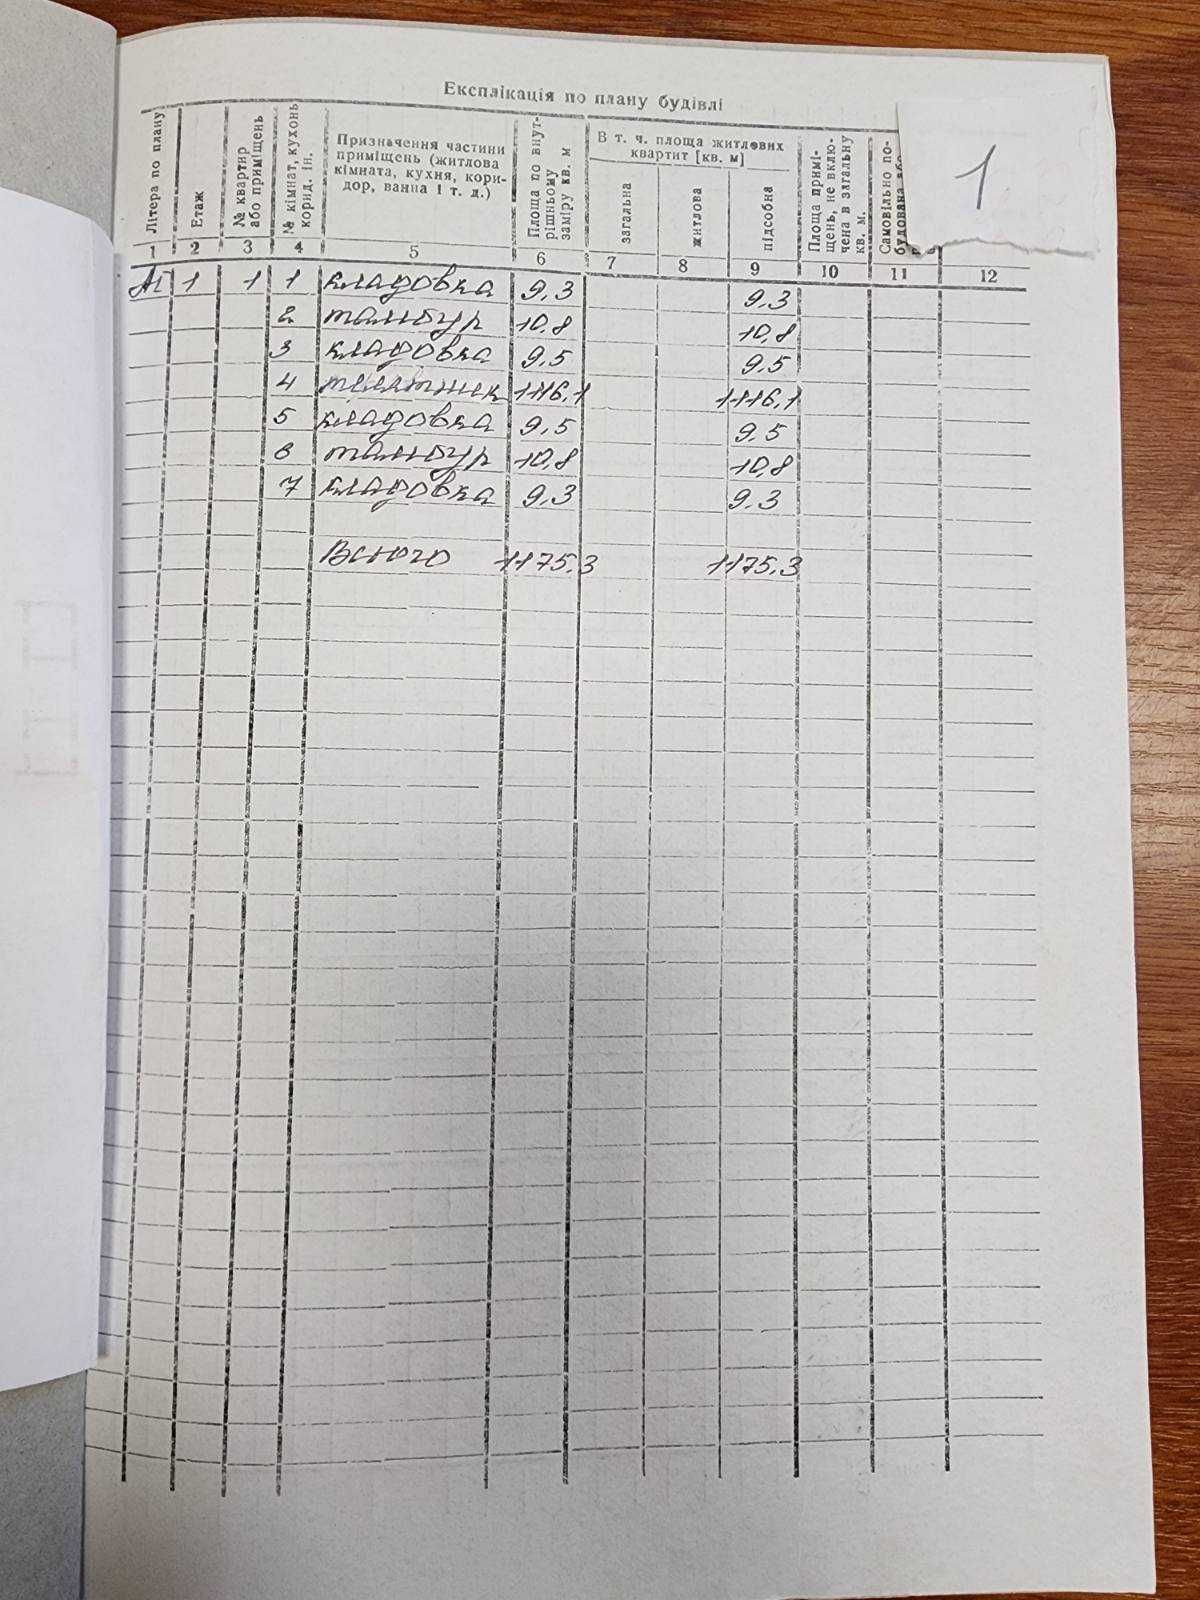 Експлікація по плану будівлі
1
Літера по плану
Етаж
№ квартир або приміщень
№ кімнат, кухонь корид. ін.
Призначення частини
приміщень (житлова
кімната, кухня, кори-
дор, ванна і т. д.)
Площа по внут-
рішньому
заміру кв. м
В т. ч. площа житлових
квартит [кв. м]
загальна
житлова
підсобна
Площа примі-
щень, не вклю-
чена в загальну
кв. м.
Самовільно по-
будована або
1 2 3 4 5 6 7 8 9 10 11 12
1 1 1 кладовка 9,3 9.3
2 тамбур 10,8 10,8
3 кладовка 9,5 9,5
4 телятник 1116,1 1116,1
5 кладовка 9,5 9,5
6 тамбур 10,8 10,8
7 кладовка 9,3 9.3
Всього 1175,3 1175,3